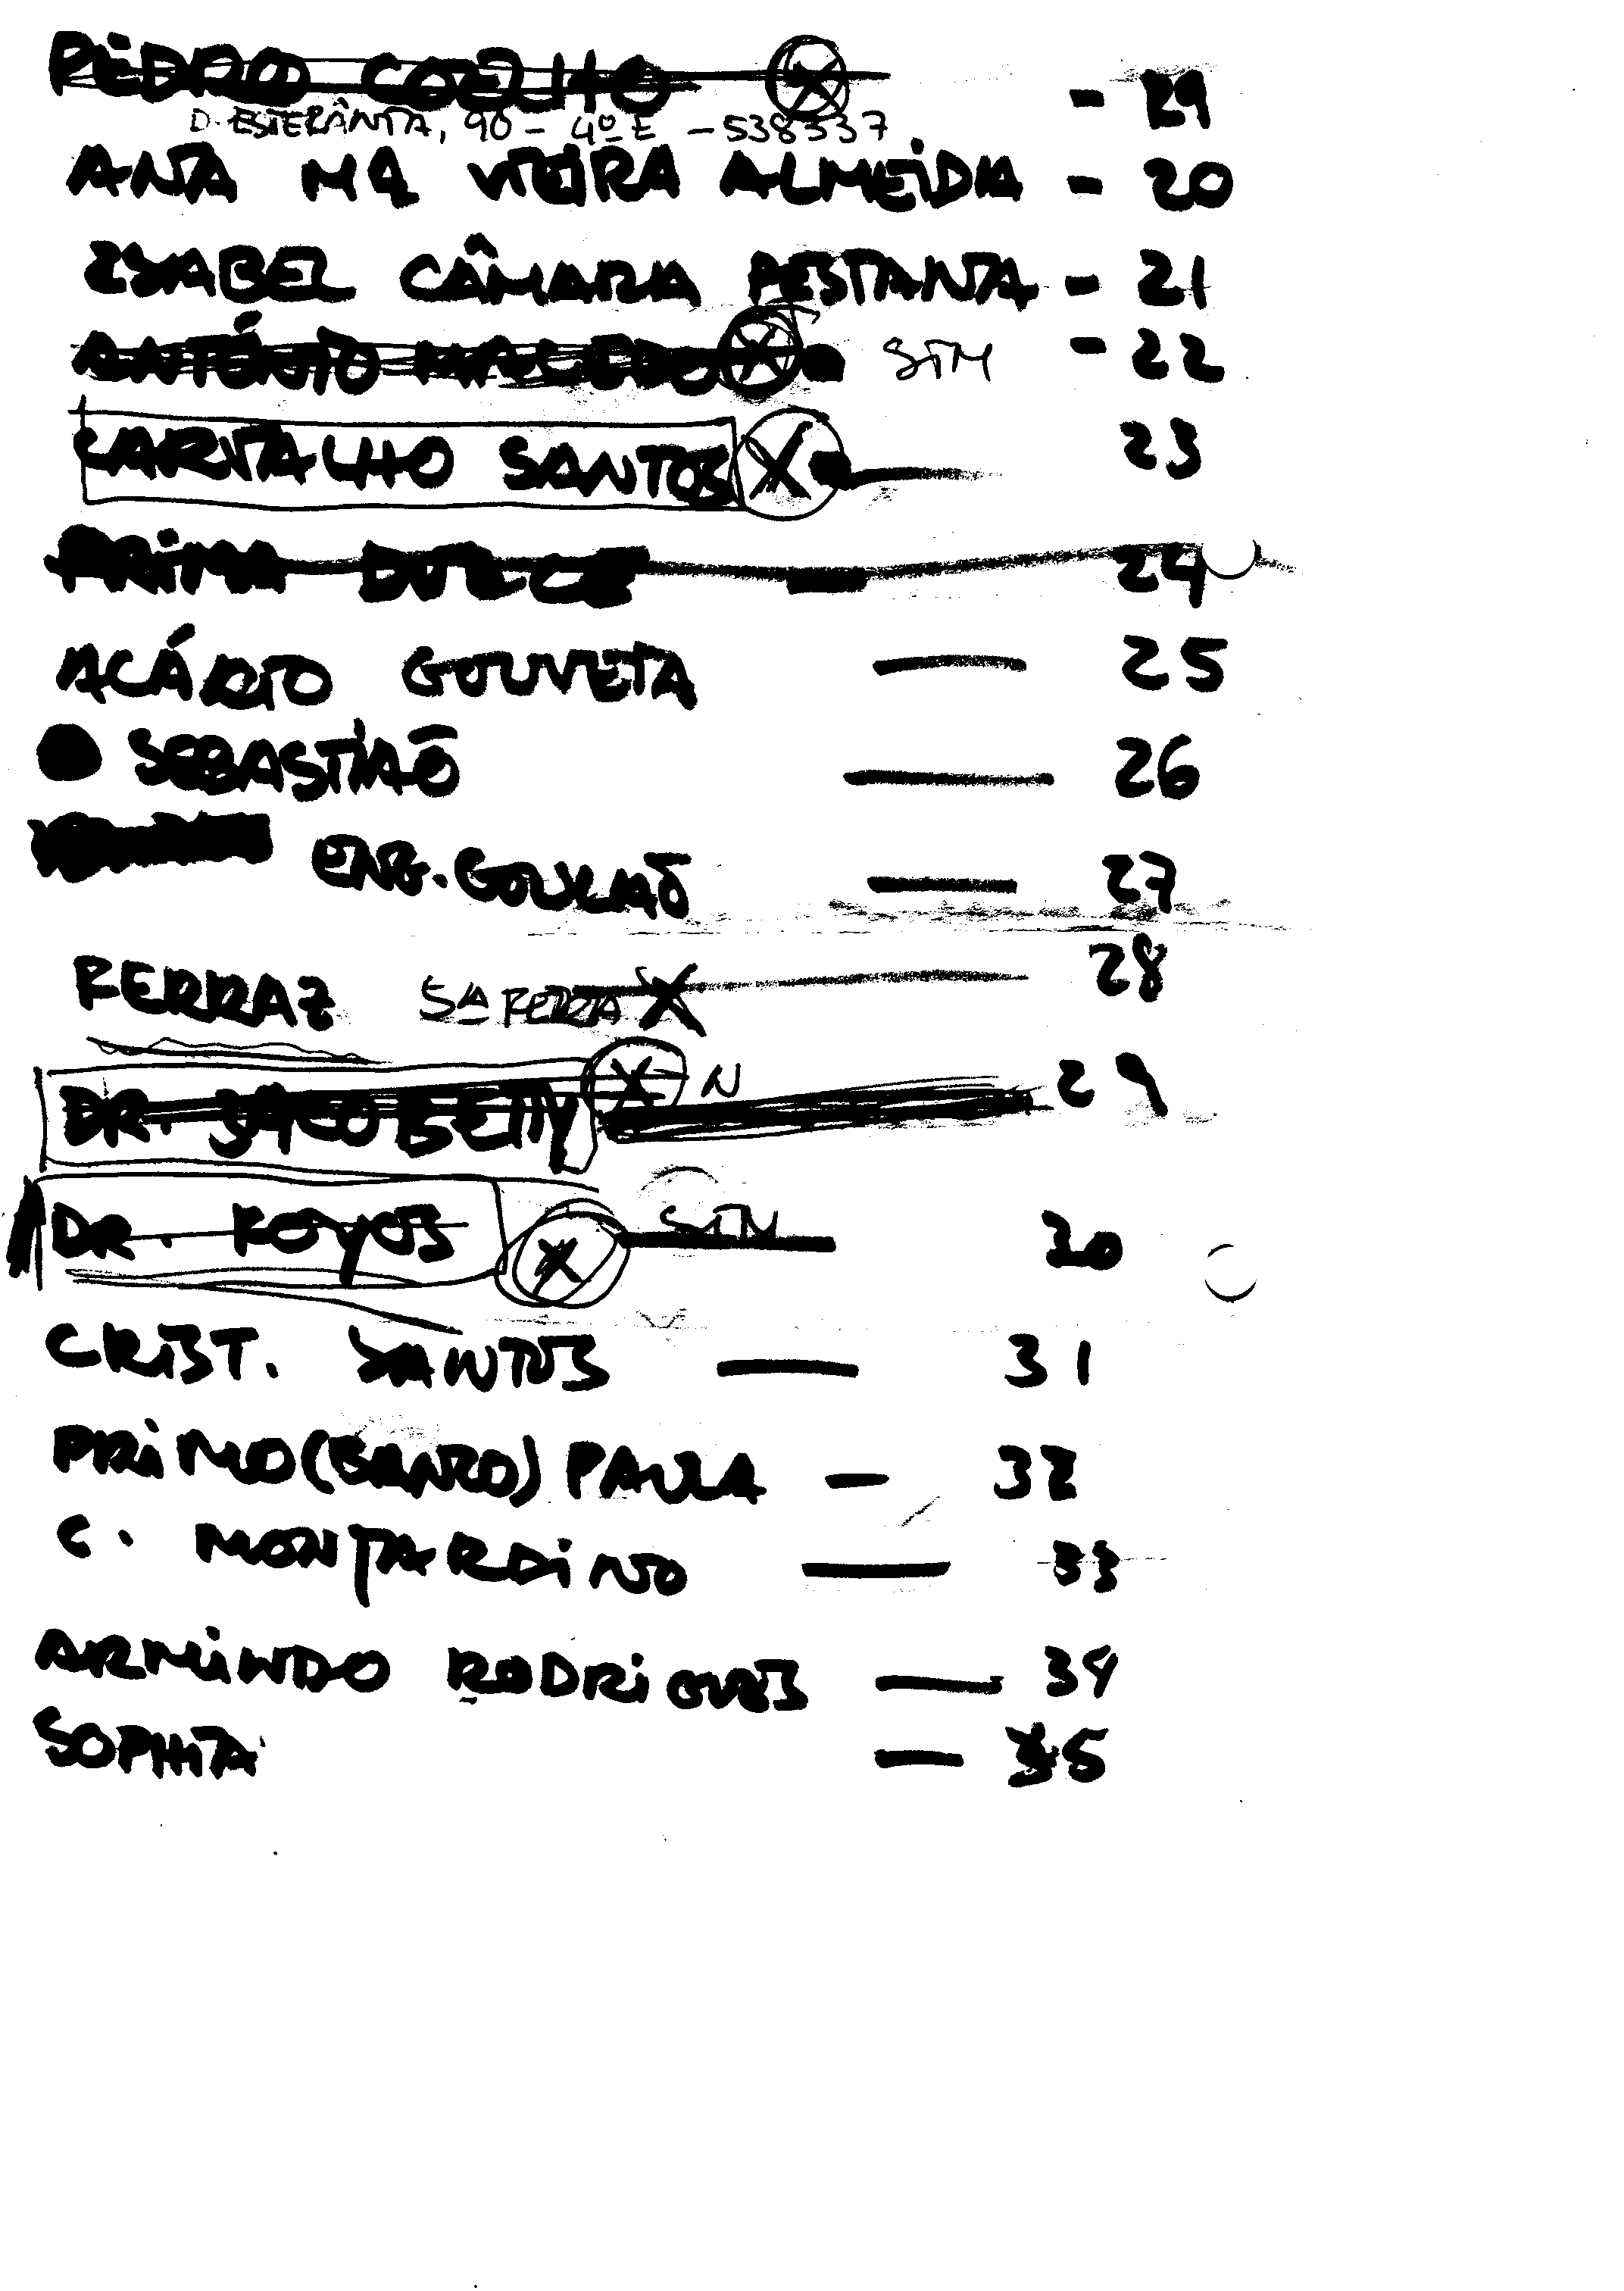 PEDRO COELHO - 29
D. ESTEFÂNIA, 90 - 4º E - 538537
ANA Mª VIEIRA ALMEIDA - 20
ISABEL CÂMARA PESTANA - 21
ANTÓNIO MACEDO X SIM - 22
CARVALHO SANTOS X — 23
PRIMA DULCE — 24
ACÁRIO GOUVEIA — 25
SEBASTIÃO — 26
ENG. GOULÃO — 27
FERRAZ 5ª FEIRA X — 28
DR. JACOBETTY X N — 29
DR. ROYOS X SIM — 30
CRIST. SANTOS — 31
PRIMO (BANCO) PAULA — 32
C. MONJARDINO — 33
ARMINDO RODRIGUES — 34
SOPHIA — 35